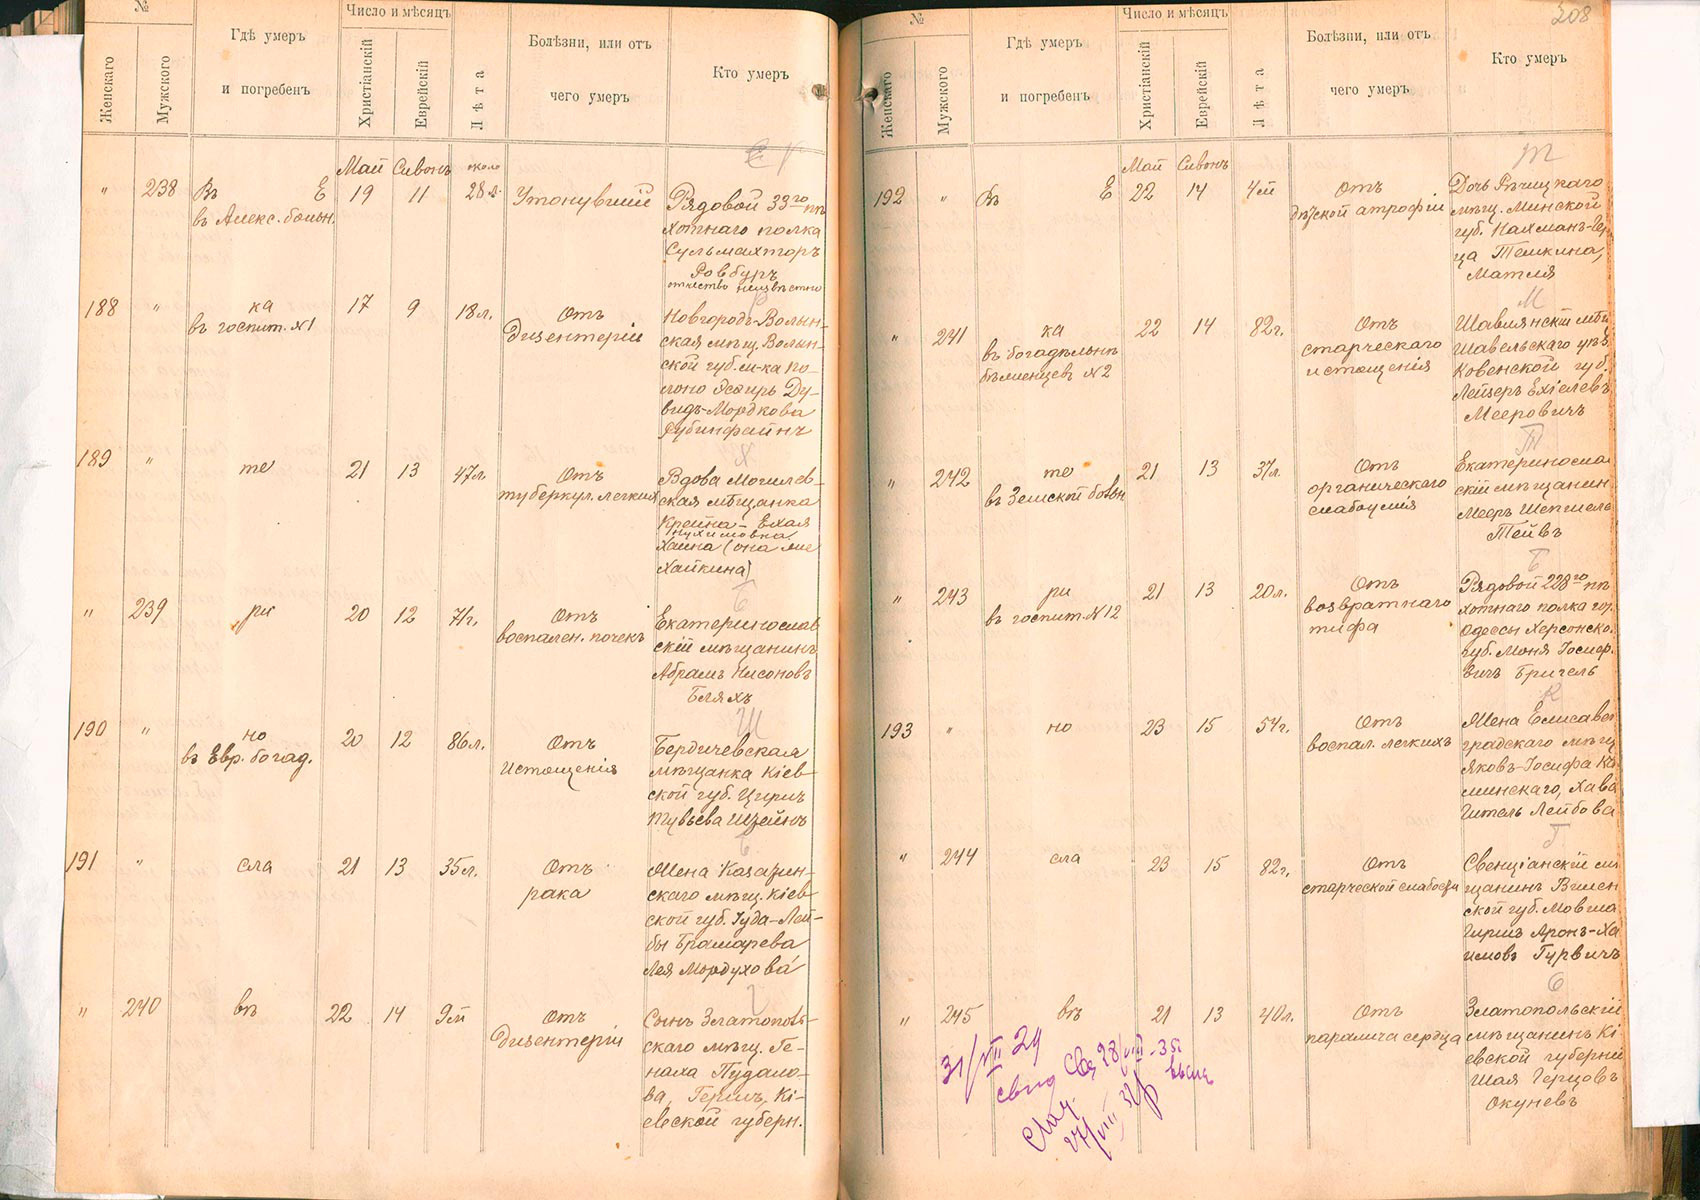 №
Женскаго
Мужского
Гдѣ умеръ
и погребенъ
Число и мѣсяцъ
Христіанскій
Еврейскій
Лѣта
Болѣзни, или отъ
чего умеръ
Кто умеръ
Май Сивонъ около
" 238 Въ Е 19 11 28 л. Утонувшій
в Алекс. больн.
Рядовой 33го пѣ
хотнаго полка
Сульмахторъ
Ровбуръ
отчество неизвѣстно
188 " ка 17 9 18 л. Отъ
въ госпит. №1 Дизентеріи
Новгородъ-Волын-
ская мѣщ. Волын-
ской губ. м-ка По-
лоно Эсѳирь Ду-
видъ-Мордкова
Рубинфайнъ
189 " те 21 13 47 л. Отъ
туберкул. легкихъ
Вдова Могилев-
ская мѣщанка
Крейна-Ехая
Нухимовна
Хаина (она же
Хайкина)
" 239 ри 20 12 71 г. Отъ
воспален. почекъ
Екатеринослав
скій мѣщанинъ
Абрамъ Нисоновъ
Бляхъ
Ш
190 " но 20 12 86 л. Отъ
въ Евр. богад. Истощенія
Бердичевская
мѣщанка Кіев-
ской губ. Цирин
Тувьева Шейнъ
191 " сла 21 13 35 л. Отъ
рака
Жена Казатин-
скаго мѣщ. Кіев-
ской губ. Іуда-Лей-
бы Брамарева
Лея Мордухова
" 240 въ 22 14 9 м Отъ
Дизентеріи
Сынъ Златополь-
скаго мѣщ. Ге-
наха Пудало-
ва, Гершъ, Кі-
евской губерн.
208
№
Женскаго
Мужского
Гдѣ умеръ
и погребенъ
Число и мѣсяцъ
Христіанскій
Еврейскій
Лѣта
Болѣзни, или отъ
чего умеръ
Кто умеръ
Май Сивонъ
Т
192 " Въ Е 22 14 4 м Отъ
дѣтской атрофіи
Дочь Рѣчицкаго
мѣщ. Минской
губ. Нахманъ-Гер
ца Темкина,
Матля
М
" 241 ка 22 14 82 г. Отъ
въ богадѣльнѣ старческаго
бѣженцевъ №2 истощенія
Шавлянскій мѣщ
Шавельскаго уѣз
Ковенской губ.
Лейзеръ Ехіелевъ
Мееровичъ
Т
" 242 те 21 13 37 л. Отъ
въ Земской больн органическаго
слабоумія
Екатеринослав
скій мѣщанин
Мееръ Шепшель
Тейвъ
Б
" 243 ри 21 13 20 л. Отъ
въ госпит. №12 возвратнаго
тифа
Рядовой 228го пѣ
хотнаго полка гор.
Одессы Херсонско
губ. Моня Іосиф.
вичъ Бригель
К
193 " но 23 15 54 г. Отъ
воспал. легкихъ
Жена Елисавет
градскаго мѣщ
Яковъ-Іосифа Ка
минскаго, Хава
Гитель Лейбова
Г
" 244 сла 23 15 82 г. Отъ
старческой слабости
Свенціанскій мѣ
щанинъ Вилен
ской губ. Мовша
Гиршъ Аронъ-Ха
имовъ Гурвичъ
О
" 245 въ 21 13 40 л. Отъ
паралича сердца
Златопольскій
мѣщанинъ Кі-
евской губерніи
Шая Герцовъ
Окуневъ
31/VII 29
свид